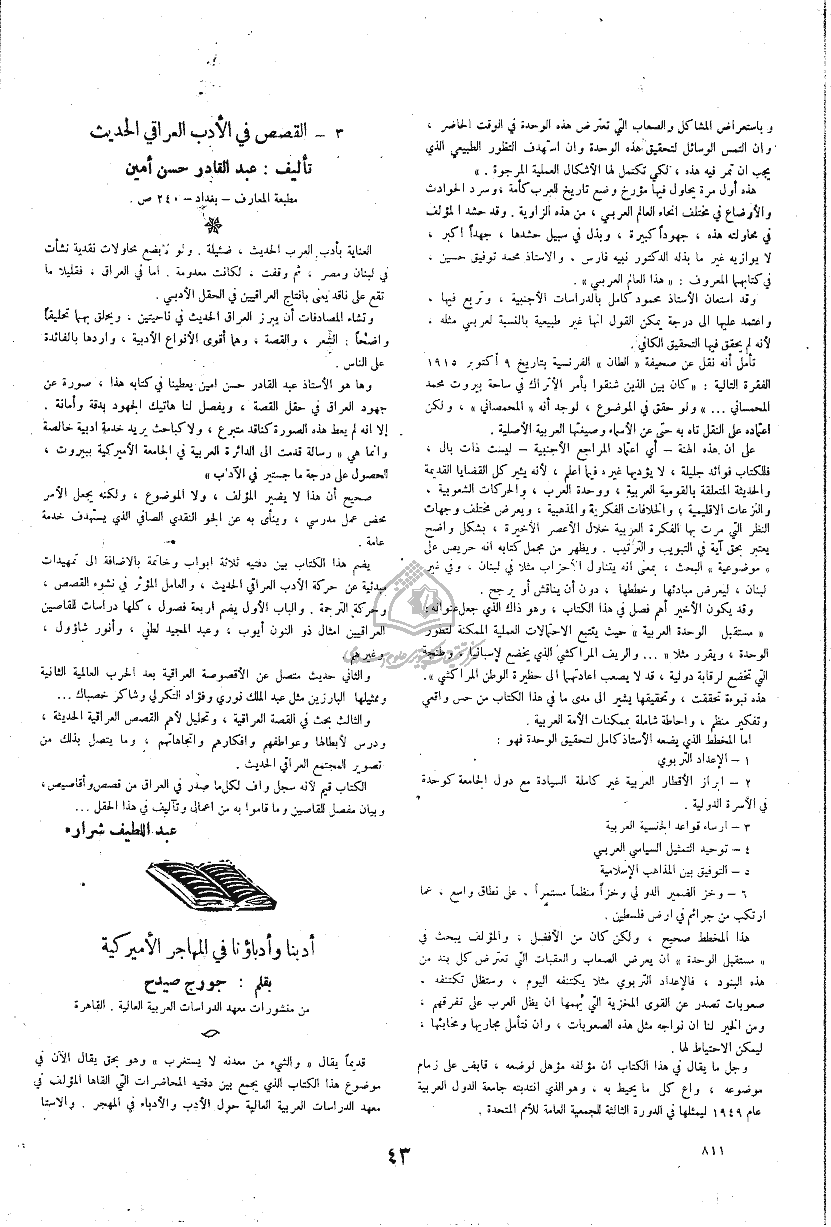 وباستعراض المشاكل والصعاب التي تعترض هذه الوحدة في الوقت الحاضر ،
وان التمس الوسائل لتحقيق هذه الوحدة وان استهدف التطور الطبيعي الذي
يجب ان تمر فيه هذه ، لكي تكتمل لها الأشكال العملية المرجوة . »
هذه أول مرة يحاول فيها مؤرخ وضع تاريخ للعرب كأمة ، وسرد الحوادث
والأوضاع في مختلف انحاء العالم العربي ، من هذه الزاوية . وقد حشد المؤلف
في محاولته هذه ، جهوداً كبيرة ، وبذل في سبيل حشدها ، جهداً اكبر ،
لا يوازيه غير ما بذله الدكتور نبيه فارس ، والاستاذ محمد توفيق حسين ،
في كتابهما المعروف : « هذا العالم العربي » .
وقد استعان الأستاذ محمود كامل بالدراسات الأجنبية ، وتربع فيها ،
واعتمد عليها الى درجة يمكن القول انها غير طبيعية بالنسبة لعربي مثله .
لأنه لم يحقق فيها التحقيق الكافي .
تأمل أنه نقل عن صحيفة « الطان » الفرنسية بتاريخ ٩ أكتوبر ١٩١٥
الفقرة التالية : « كان بين الذين شنقوا بأمر الأتراك في ساحة بيروت محمد
المحمساني ... » ولو حقق في الموضوع ، لوجد أنه « المحمصاني » ، ولكن
اعتماده على النقل تاه به حتى عن الأسماء وصيغتها العربية الأصلية .
على ان هذه الهنة – أي اعتماد المراجع الأجنبية – ليست ذات بال ،
فللكتاب فوائد جليلة ، لا يؤديها غيره فيما اعلم ، لأنه يثير كل القضايا القديمة
والحديثة المتعلقة بالقومية العربية ، ووحدة العرب ، والحركات الشعوبية ،
والنزعات الاقليمية ، والخلافات الفكرية والمذهبية ، ويعرض مختلف وجهات
النظر التي مرت بها الفكرة العربية خلال الأعصر الأخيرة ، بشكل واضح
يعتبر بحق آية في التبويب والترتيب . ويظهر من مجمل كتابه انه حريص على
« موضوعية » البحث ، بمعنى أنه يتناول الأحزاب مثلا في لبنان ، وفي غير
لبنان ، ليعرض مبادئها وخططها ، دون أن يناقش أو يرجح .
وقد يكون الأخير أهم فصل في هذا الكتاب ، وهو ذاك الذي جعل عنوانه :
« مستقبل الوحدة العربية » حيث يتتبع الاحتمالات العملية الممكنة لتطور
الوحدة ، ويقرر مثلا « ... والريف المراكشي الذي يخضع لإسبانيا ، وطنجة
التي تخضع لرقابة دولية ، قد لا يصعب اعادتهما الى حظيرة الوطن المراكشي » .
هذه نبوءة تحققت ، وتحقيقها يشير الى مدى ما في هذا الكتاب من حس واقعي
وتفكير منظم ، واحاطة شاملة بممكنات الأمة العربية .
اما المخطط الذي يضعه الأستاذ كامل لتحقيق الوحدة فهو :
١ – الإعداد التربوي
٢ – ابراز الأقطار العربية غير كاملة السيادة مع دول الجامعة كوحدة
في الأسرة الدولية .
٣ – ارساء قواعد الجنسية العربية
٤ – توحيد التمثيل السياسي العربي
٥ – التوفيق بين المذاهب الإسلامية
٦ – وخز الضمير الدولي وخزاً منظماً مستمراً . على نطاق واسع ، عما
ارتكب من جرائم في ارض فلسطين .
هذا المخطط صحيح ، ولكن كان من الأفضل ، والمؤلف يبحث في
« مستقبل الوحدة » ان يعرض الصعاب والعقبات التي تعترض كل بند من
هذه البنود ، فالإعداد التربوي مثلا يكتنفه اليوم ، وستظل تكتنفه .
صعوبات تصدر عن القوى المخزية التي يهمها ان يظل العرب على تفرقهم ،
ومن الخير لنا ان نواجه مثل هذه الصعوبات ، وان نتأمل مجاريها ومخابئها ،
ليمكن الاحتياط لها .
وجل ما يقال في هذا الكتاب ان مؤلفه مؤهل لوضعه ، قابض على زمام
موضوعه ، واع كل ما يحيط به ، وهو الذي انتدبته جامعة الدول العربية
عام ١٩٤٩ ليمثلها في الدورة الثالثة للجمعية العامة للأمم المتحدة .
٣ – القصص في الأدب العراقي الحديث
تأليف : عبد القادر حسن أمين
مطبعة المعارف – بغداد – ٢٤٠ ص .
العناية بأدب العرب الحديث ، ضئيلة . ولو لا بضع محاولات نقدية نشأت
في لبنان ومصر ، ثم وقفت ، لكانت معدومة . اما في العراق ، فقليلا ما
تقع على ناقد يعنى بانتاج العراقيين في الحقل الأدبي .
وتشاء المصادفات أن يبرز العراق الحديث في ناحيتين ، ويحلق بهما تحليقاً
واضحاً : الشعر ، والقصة ، وهما أقوى الأنواع الأدبية ، واردها بالفائدة
على الناس .
وها هو الأستاذ عبد القادر حسن امين يعطينا في كتابه هذا ، صورة عن
جهود العراق في حقل القصة ، ويفصل لنا هاتيك الجهود بدقة وأمانة .
إلا انه لم يعط هذه الصورة كناقد متبرع ، ولا كباحث يريد خدمة ادبية خالصة
وانما هي « رسالة قدمت الى الدائرة العربية في الجامعة الأميركية ببيروت ،
الحصول على درجة ماجستير في الآداب »
صحيح أن هذا لا يضير المؤلف ، ولا الموضوع ، ولكنه يجعل الأمر
محض عمل مدرسي ، وينأى به عن الجو النقدي الصافي الذي يستهدف خدمة
عامة .
يضم هذا الكتاب بين دفتيه ثلاثة ابواب وخاتمة بالاضافة الى تمهيدات
مبدئية عن حركة الأدب العراقي الحديث ، والعامل المؤثر في نشوء القصص ،
وحركة الترجمة . والباب الأول يضم اربعة فصول ، كلها دراسات للقاصين
العراقيين امثال ذو النون أيوب ، وعبد المجيد لطفي ، وأنور شاؤول ،
وغيرهم
والثاني حديث متصل عن الأقصوصة العراقية بعد الحرب العالمية الثانية
وممثليها البارزين مثل عبد الملك نوري وفؤاد التكرلي وشاكر خصباك ...
والثالث بحث في القصة العراقية ، وتحليل لأهم القصص العراقية الحديثة ،
ودرس لأبطالها وعواطفهم وافكارهم واتجاهاتهم ، وما يتصل بذلك من
تصوير المجتمع العراقي الحديث .
الكتاب قيم لأنه سجل واف لكل ما صدر في العراق من قصص وأقاصيص ،
وبيان مفصل للقاصين وما قاموا به من اعمال وتآليف في هذا الحقل ...
عبد اللطيف شراره
أدبنا وأدباؤنا في المهاجر الأميركية
بقلم : جورج صيدح
من منشورات معهد الدراسات العربية العالية . القاهرة
قديماً يقال « والشيء من معدنه لا يستغرب » وهو بحق يقال الآن في
موضوع هذا الكتاب الذي يجمع بين دفتيه المحاضرات التي القاها المؤلف في
معهد الدراسات العربية العالية حول الأدب والأدباء في المهجر . والاستا
٨١١
٤٣